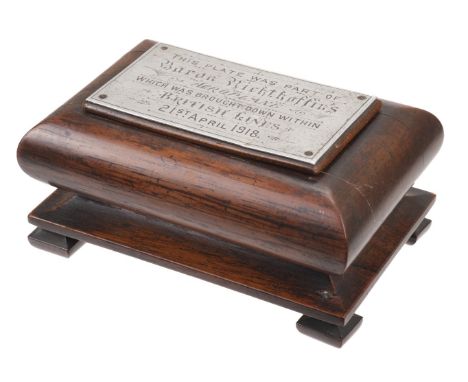 THIS PLATE WAS PART OF
Baron Richthoffen's
AEROPLANE
WHICH WAS BROUGHT DOWN WITHIN
BRITISH LINES
21ST APRIL 1918.